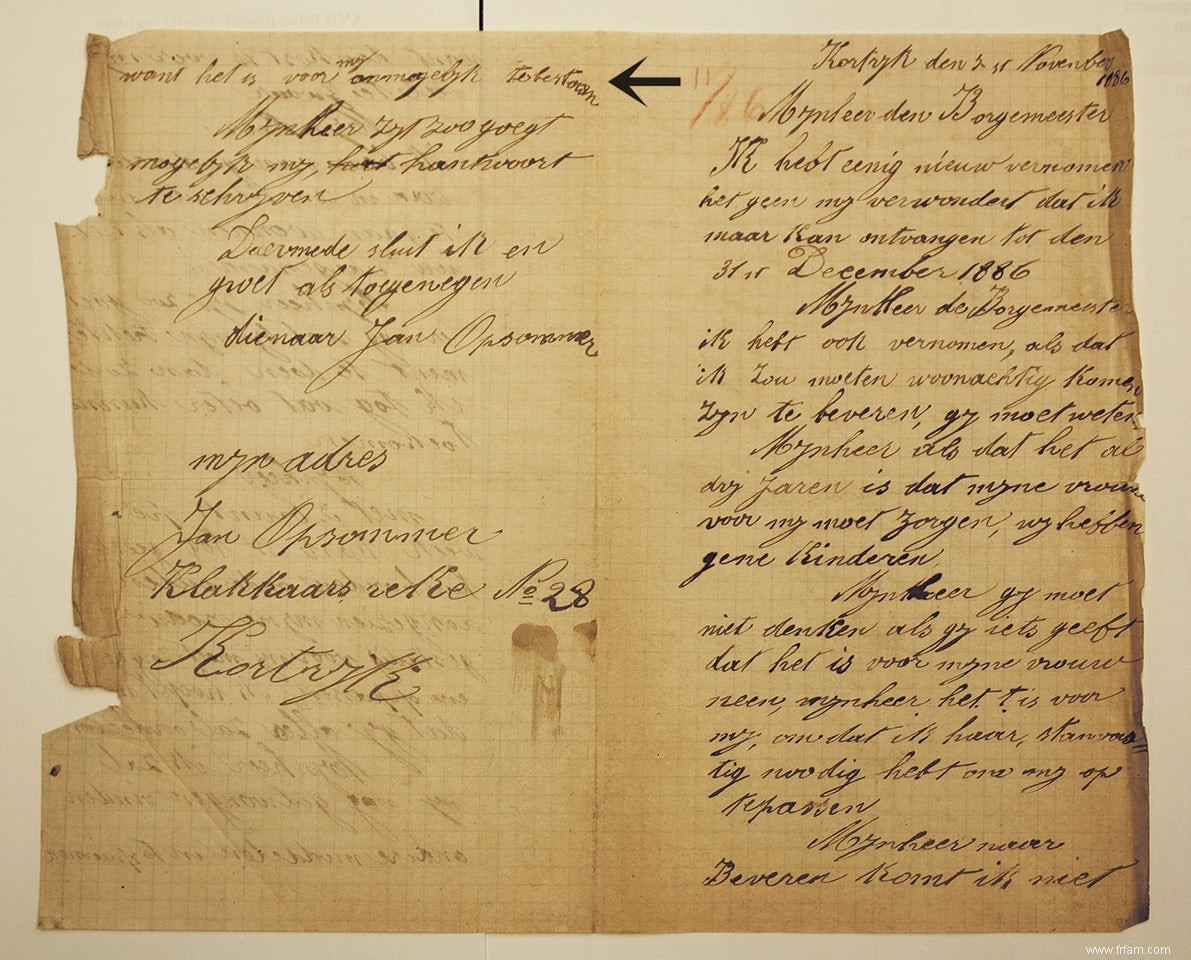 want het is voor my onmogelyk te bestaan
Mynheer zyt zoo goegt
mogelyk my, hantwoort
te schryven
Daermede sluit ik en
groet als toegenegen
dienaar Jan Opsommer
myn adres
Jan Opsommer
Klakkaars reke No 28
Kortryk
Kortryk den 2 st November
1886
11/86
Mynheer den Borgemeester
IK hebt eenig nieuw vernomen
het geen my verwondert dat ik
maar kan ontvangen tot den
31 st December 1886
Mynheer de Borgemeester
ik hebt ook vernomen, als dat
ik zou moeten woonachtig komen
zyn te beveren, gy moet weten
Mynheer als dat het al
dry Jaren is dat myne vrouw
voor my moet zorgen, wy hebben
gene kinderen
Mynheer gy moet
niet denken als gy iets geeft
dat het is voor myne vrouw
neen, mynheer het t is voor
my, om dat ik haar, stanvaa=
tig noodig hebt om my op
te passen
Mynheer naar
Beveren komt ik niet
www.frfam.com